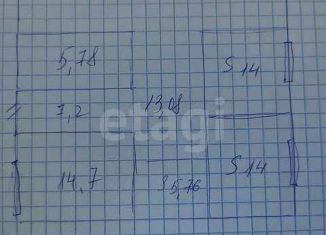 5,78
S 14
7,2
13,08
etagi
14,7
S 14
35,76